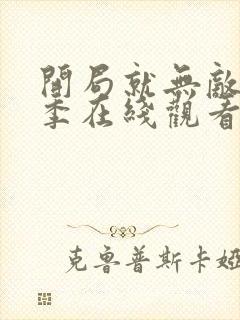 開局就無敵
季在綫觀看
克魯普斯卡婭